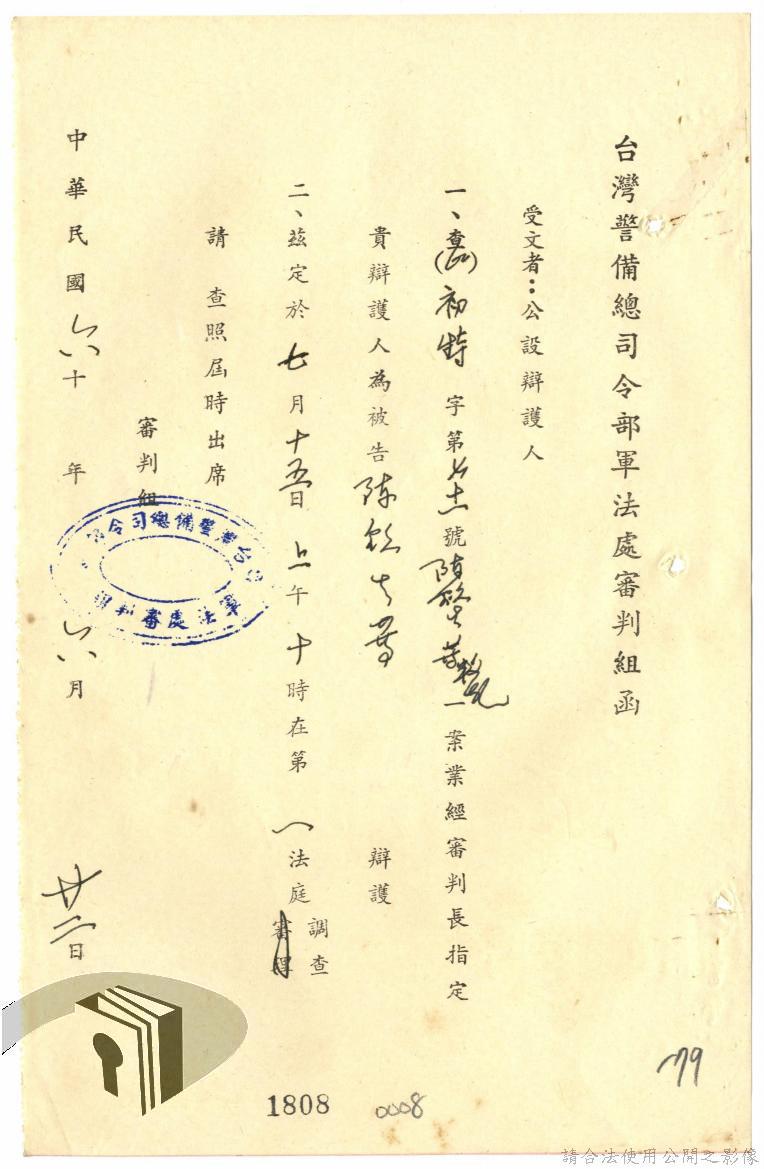 台灣警備總司令部軍法處審判組函
受文者：公設辯護人
一、查(60)初特字第 號陳欽生等叛亂一案業經審判長指定
貴辯護人為被告陳欽生等 辯護
二、茲定於七月十五日上午十時在第一法庭調查審理
請 查照屆時出席
審判組
台灣警備總司令部軍法處審判組
中華民國六十年六月廿二日
79
1808
0008
請合法使用公開之影像